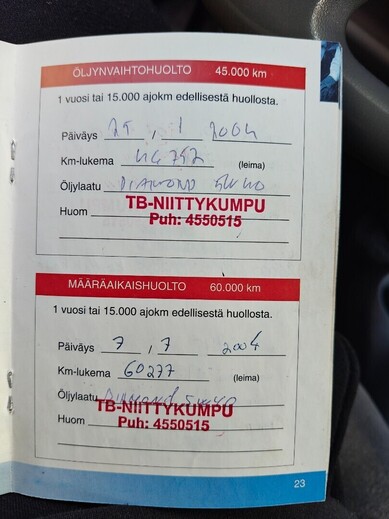 ÖLJYNVAIHTOHUOLTO 45.000 km
1 vuosi tai 15.000 ajokm edellisestä huollosta.
Päiväys 25 , 1 2004
Km-lukema 44752 (leima)
Öljylaatu DIAMOND 5W40
TB-NIITTYKUMPU
Huom Puh: 4550515
MÄÄRÄAIKAISHUOLTO 60.000 km
1 vuosi tai 15.000 ajokm edellisestä huollosta.
Päiväys 7 , 7 2004
Km-lukema 60277 (leima)
Öljylaatu DIAMOND 5W40
TB-NIITTYKUMPU
Huom Puh: 4550515
23